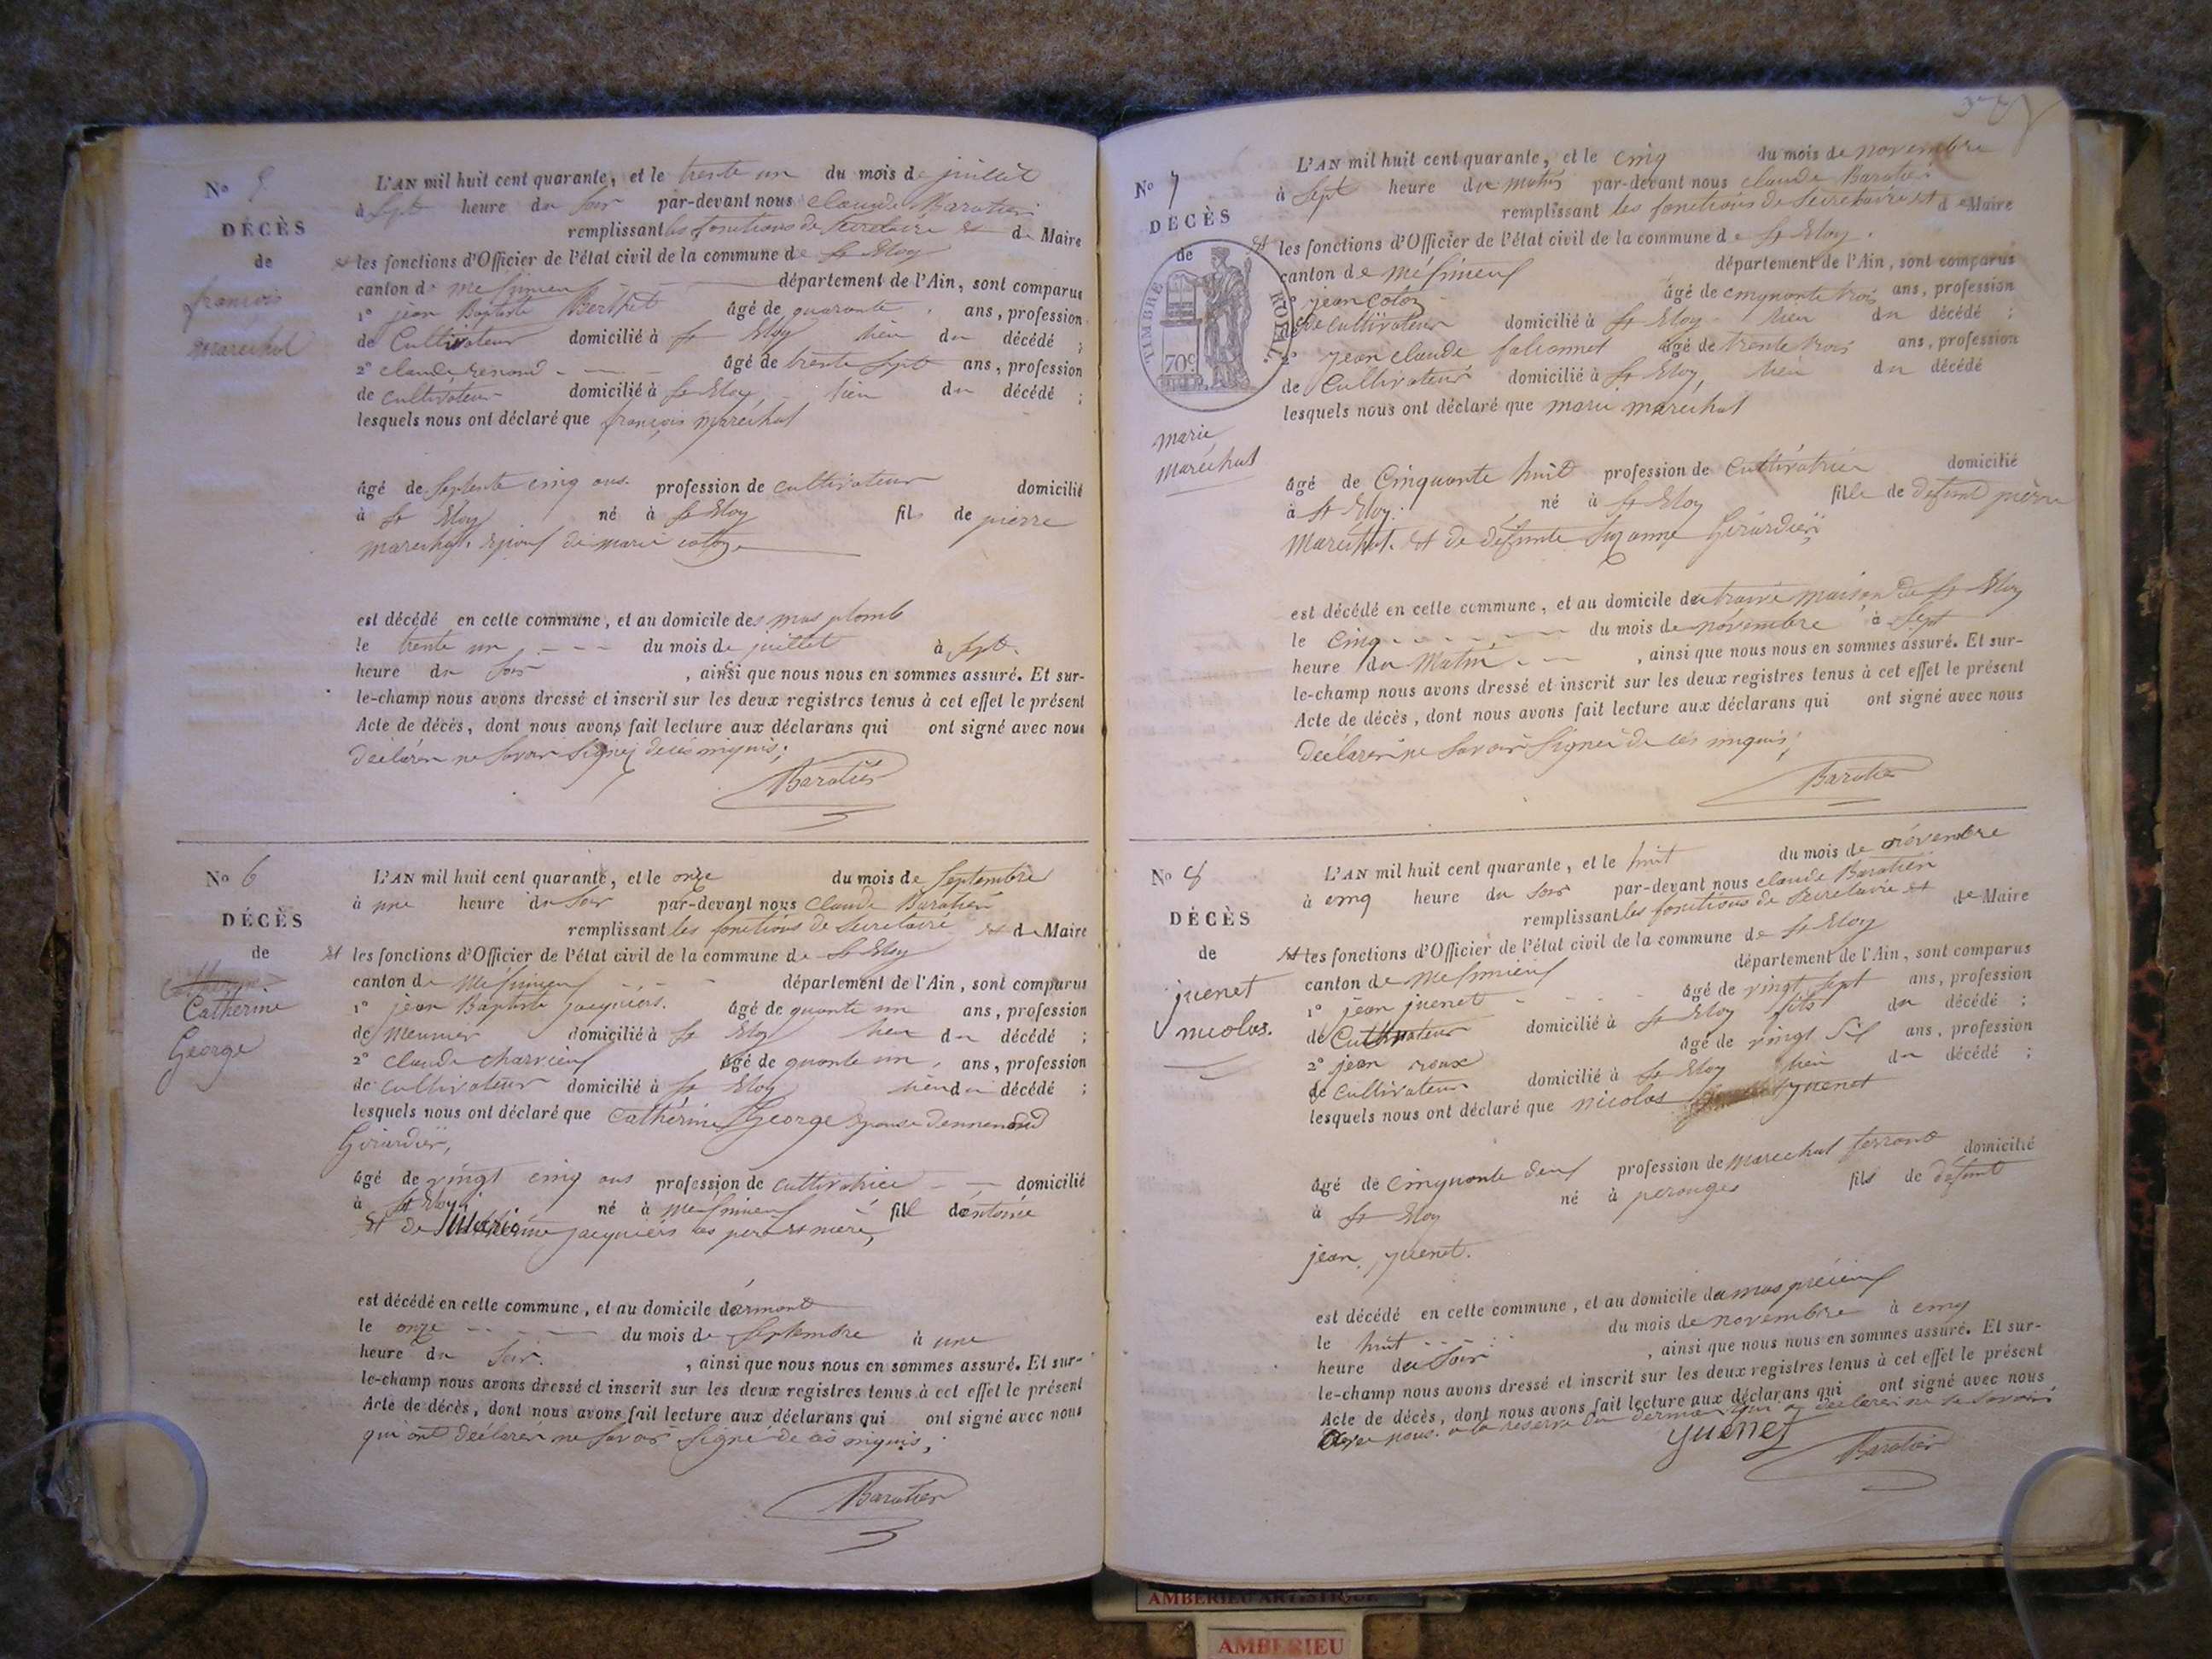 N° 5
DÉCÈS
de
françois
marechal
L'AN mil huit cent quarante, et le trente un du mois de juillet
à Sept heure du soir par-devant nous claude Baratier
remplissant les fonctions de secretaire et de Maire
et les fonctions d'Officier de l'état civil de la commune de St Eloy
canton de meximieux département de l'Ain, sont comparus
1° jean Baptiste Berthet âgé de quarante ans, profession
de Cultivateur domicilié à St Eloy lieu du décédé ;
2° claude renard âgé de trente sept ans, profession
de cultivateur domicilié à St Eloy lieu du décédé ;
lesquels nous ont déclaré que françois marechal
âgé de Septente cinq ans profession de cultivateur domicilié
à St Eloy né à St Eloy fils de pierre
marechal. epoux de marie
est décédé en cette commune, et au domicile des mas plomb
le trente un du mois de juillet à sept
heure du soir, ainsi que nous nous en sommes assuré. Et sur-
le-champ nous avons dressé et inscrit sur les deux registres tenus à cet effet le présent
Acte de décès, dont nous avons fait lecture aux déclarans qui ont signé avec nous
declaren ne savoir signé de ces enquis ;
Baratier
N° 6
DÉCÈS
de
Catherine
George
L'AN mil huit cent quarante, et le onze du mois de Septembre
à une heure du soir par-devant nous claude Baratier
remplissant les fonctions de secretaire et de Maire
et les fonctions d'Officier de l'état civil de la commune de St Eloy
canton de Meximieux département de l'Ain, sont comparus
1° jean Baptiste jacquiers. âgé de quante un ans, profession
de Meunier domicilié à St Eloy lieu du décédé ;
2° claude charvieux âgé de quante un, ans, profession
de cultivateur domicilié à St Eloy lieu du décédé ;
lesquels nous ont déclaré que Catherine George epouse dennemond
Girardier,
âgé de vingt cinq ans profession de cultivatrice domicilié
à St Eloy né à meximieux fill dantoine
et de jacquiers ses pere et mere,
est décédé en cette commune, et au domicile darmont
le onze du mois de Septembre à une
heure du soir., ainsi que nous nous en sommes assuré. Et sur-
le-champ nous avons dressé et inscrit sur les deux registres tenus à cet effet le présent
Acte de décès, dont nous avons fait lecture aux déclarans qui ont signé avec nous
qui ont declaren ne savoir signé de ces enquis ;
Baratier
N° 7
DÉCÈS
de
TIMBRE ROYAL
70c
marie
maréchal
L'AN mil huit cent quarante, et le cinq du mois de novembre
à Sept heure du matin par-devant nous claude Baratier
remplissant les fonctions de Secretaire et de Maire
et les fonctions d'Officier de l'état civil de la commune de St Eloy.
canton de méximieux département de l'Ain, sont comparus
1° jean âgé de cinquante trois ans, profession
de cultivateur domicilié à St Eloy lieu du décédé ;
2° jean claude falconnet âgé de trente trois ans, profession
de Cultivateur domicilié à St Eloy, lieu du décédé
lesquels nous ont déclaré que marie marechal
âgé de Cinquante huit profession de Cultivatrice domicilié
à St Eloy. né à St Eloy fille de défunt pierre
Marechal. et de défunte Suzanne Girardier
est décédé en cette commune, et au domicile de maison de St Eloy
le Cinq du mois de novembre à Sept
heure du Matin, ainsi que nous nous en sommes assuré. Et sur-
le-champ nous avons dressé et inscrit sur les deux registres tenus à cet effet le présent
Acte de décès, dont nous avons fait lecture aux déclarans qui ont signé avec nous
declaren ne savoir signer de ces enquis ;
Baratier
N° 8
DÉCÈS
de
juenet
nicolas.
L'AN mil huit cent quarante, et le huit du mois de novembre
à cinq heure du soir par-devant nous claude Baratier
remplissant les fonctions de secretaire et de Maire
et les fonctions d'Officier de l'état civil de la commune de St Eloy
canton de Meximieux département de l'Ain, sont comparus
1° jean juenet âgé de vingt sept ans, profession
de Cultivateur domicilié à St Eloy fils du décédé ;
2° jean roux âgé de vingt six ans, profession
de cultivateur domicilié à St Eloy lieu du décédé ;
lesquels nous ont déclaré que nicolas juenet
âgé de cinquante deux profession de marechal ferrant domicilié
à St Eloy né à perouges fils de défunt
jean juenet.
est décédé en cette commune, et au domicile du mas précieux
le huit du mois de novembre à cinq
heure du soir, ainsi que nous nous en sommes assuré. Et sur-
le-champ nous avons dressé et inscrit sur les deux registres tenus à cet effet le présent
Acte de décès, dont nous avons fait lecture aux déclarans qui ont signé avec nous
avec nous. a la reserve du dernier qui a declaren ne le savoir
juenet
Baratier
AMBERIEU ARTISTIQUE
AMBERIEU